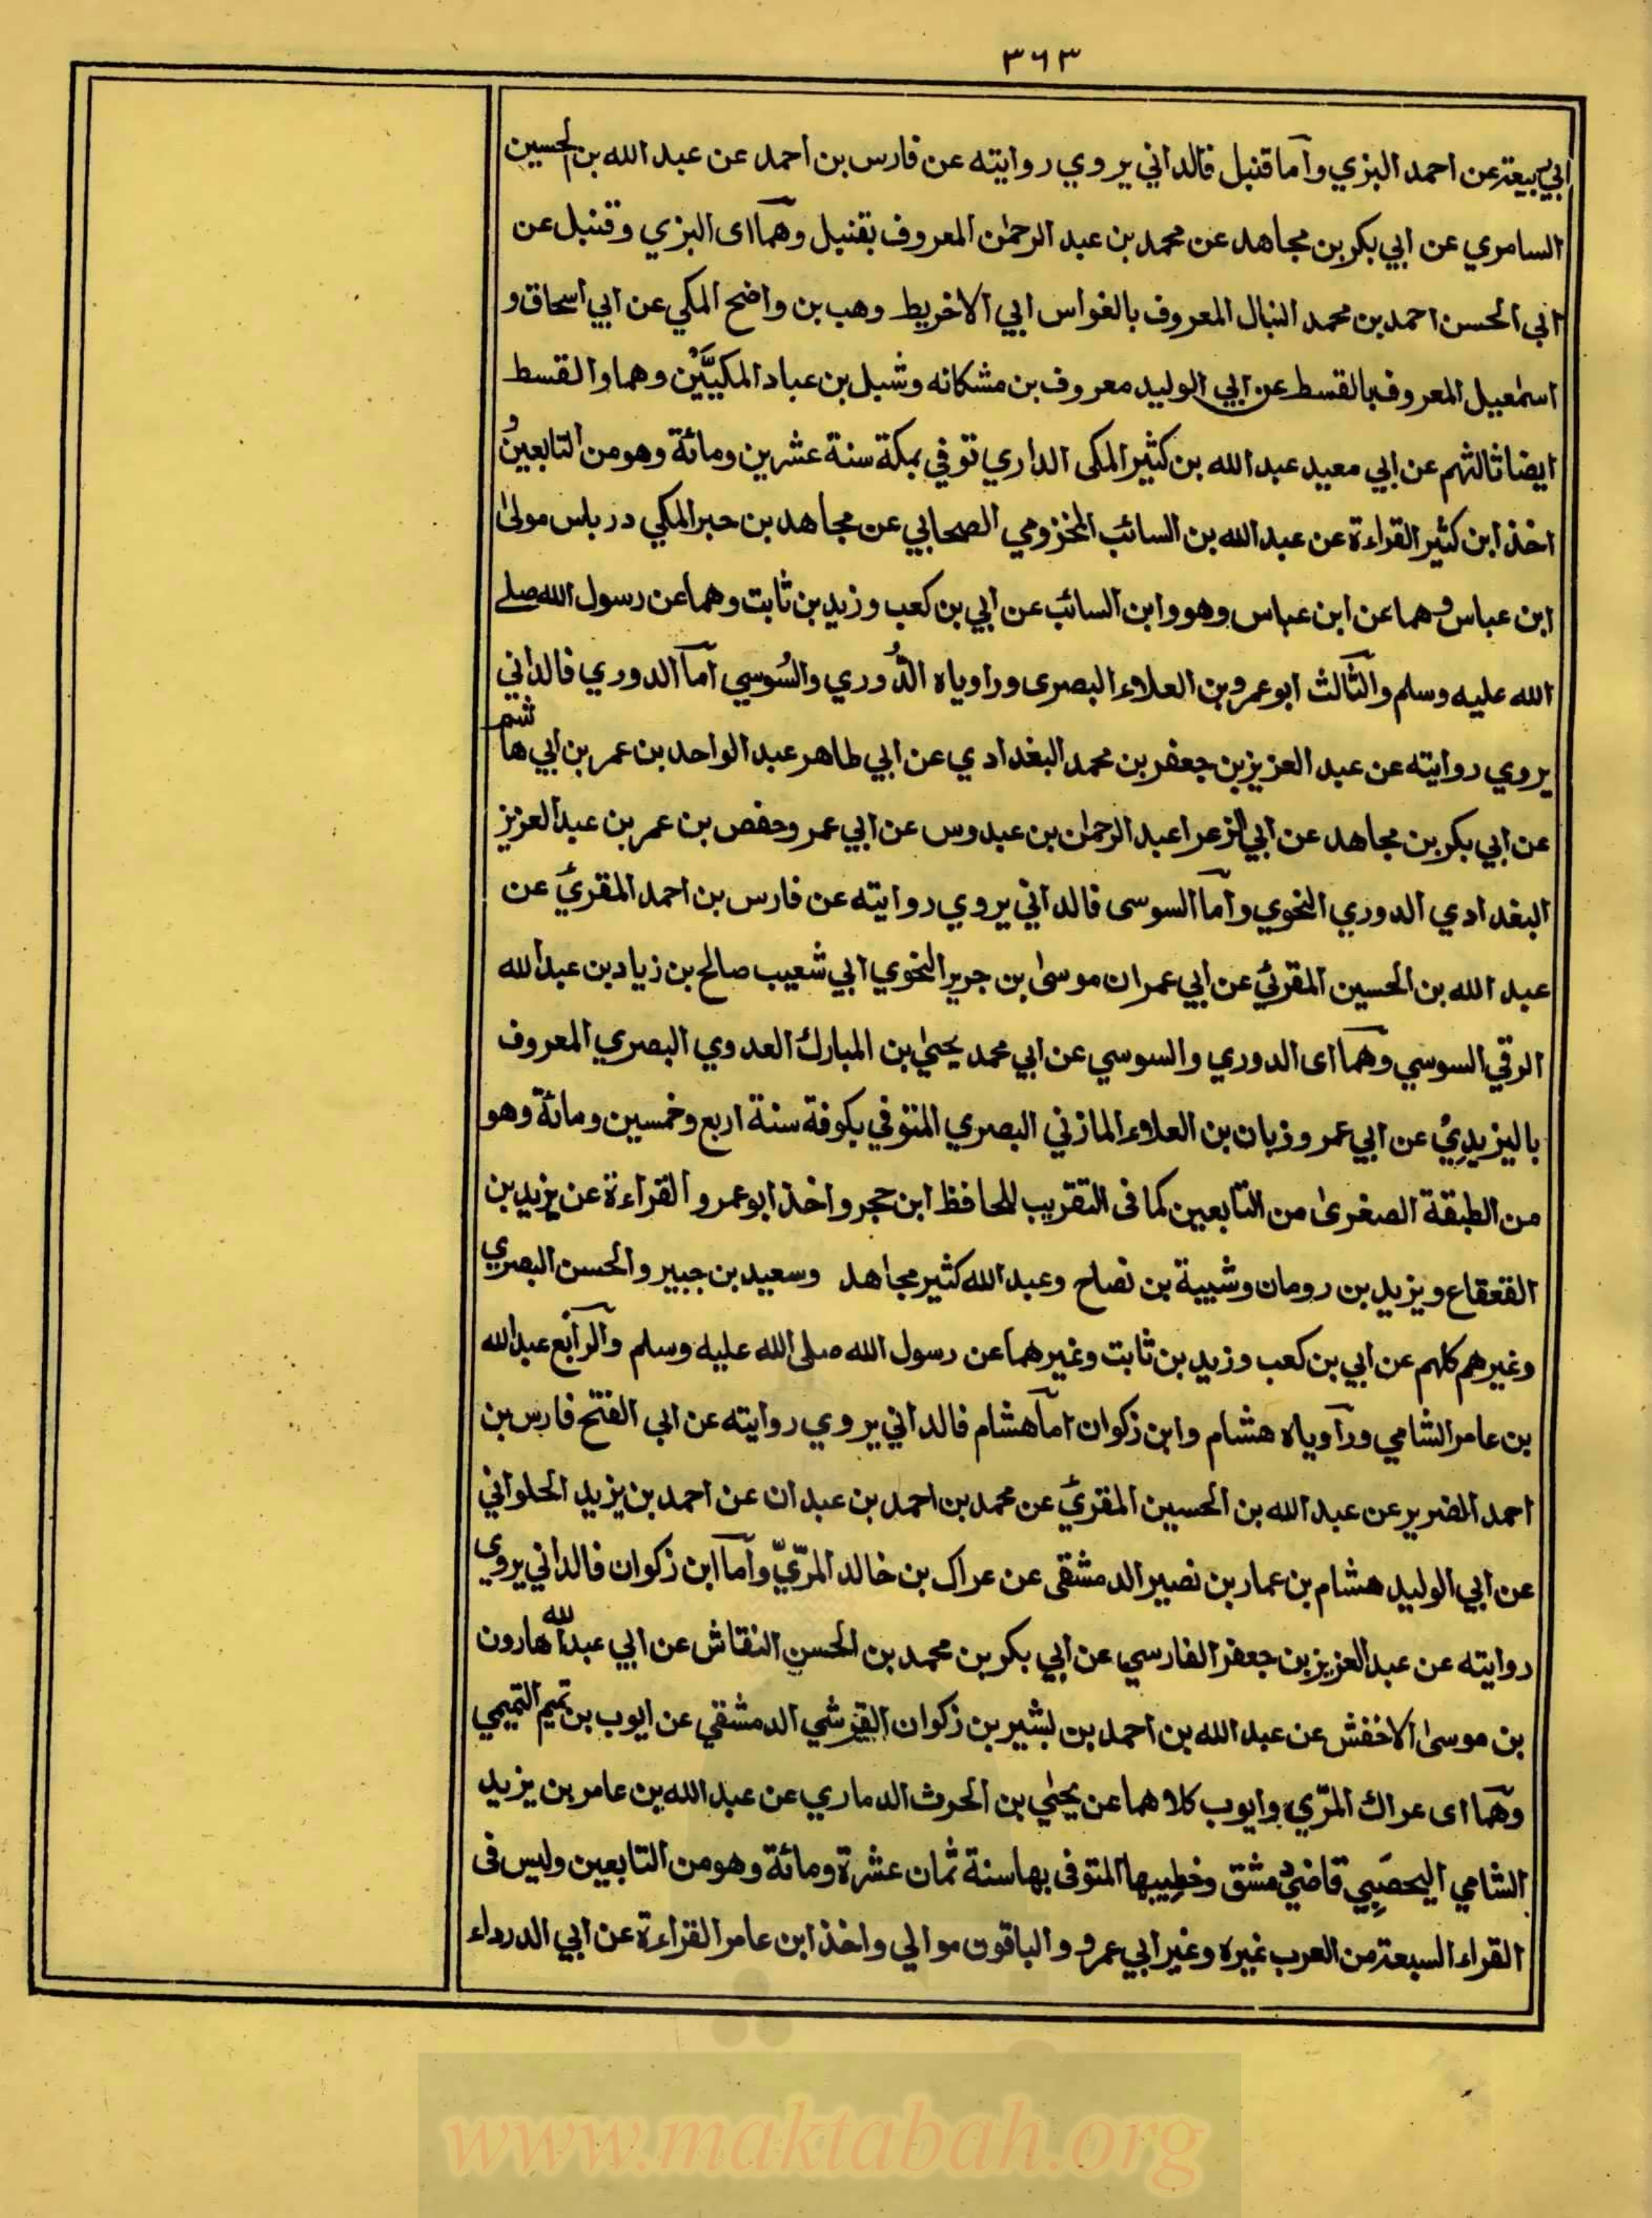 ٣٦٣
ابي ربيعة عن احمد البزي وآما قنبل فالداني يروي روايته عن فارس بن احمد عن عبد الله بن الحسين
السامري عن ابي بكر بن مجاهد عن محمد بن عبد الرحمٰن المعروف بقنبل وهمآ اى البزي وقنبل عن
ابى الحسن احمد بن محمد النبال المعروف بالغواس ابي الاخريط وهب بن واضح المكي عن ابي اسحاق و
اسمٰعيل المعروف بالقسط عن ابي الوليد معروف بن مشكانه وشبل بن عباد المكيَّيْن وهما والقسط
ايضا ثالثهم عن ابي معبد عبد الله بن كثير المكى الداري توفي بمكة سنة عشرين ومائة وهو من التابعين و
اخذ ابن كثير القراءة عن عبد الله بن السائب المخزومي الصحابي عن مجاهد بن حبر المكي درباس مولىٰ
ابن عباس وهما عن ابن عباس وهو وابن السائب عن ابي بن كعب وزيد بن ثابت وهما عن رسول الله صلے
الله عليه وسلم والثالث ابو عمرو بن العلاء البصرى وراوياه الدُّوري والسُوسي آما الدوري فالداني
يروي روايته عن عبد العزيز بن جعفر بن محمد البغدادي عن ابي طاهر عبد الواحد بن عمر بن ابي هاشم
عن ابي بكر بن مجاهد عن ابي الزعرا عبد الرحمٰن بن عبدوس عن ابي عمر وحفص بن عمر بن عبد العزيز
البغدادي الدوري النحوي وآما السوسى فالداني يروي روايته عن فارس بن احمد المقريّ عن
عبد الله بن الحسين المقرئي عن ابي عمران موسىٰ بن جرير النحوي ابي شعيب صالح بن زياد بن عبد الله
الرقي السوسي وهمآ اى الدوري والسوسي عن ابي محمد يحيىٰ بن المبارك العدوي البصري المعروف
باليزيدِيْ عن ابي عمر وزبان بن العلاء المازني البصري المتوفي بكوفة سنة اربع وخمسين ومائة وهو
من الطبقة الصغرىٰ من التابعين كما فى التقريب للحافظ ابن حجر واخذ ابو عمرو القراءة عن يزيد بن
القعقاع ويزيد بن رومان وشيبة بن نصاح وعبد الله كثير مجاهد وسعيد بن جبير والحسن البصري
وغيرهم كلهم عن ابي بن كعب وزيد بن ثابت وغيرهما عن رسول الله صلى الله عليه وسلم والرآبع عبد الله
بن عامر الشامي ورآوياه هشام وابن ذكوان آما هشام فالداني يروي روايته عن ابى الفتح فارس بن
احمد الضرير عن عبد الله بن الحسين المقريّ عن محمد بن احمد بن عبدان عن احمد بن يزيد الحلواني
عن ابي الوليد هشام بن عمار بن نصير الدمشقى عن عراك بن خالد المرّيّ وآما ابن ذكوان فالداني يروي
روايته عن عبد العزيز بن جعفر الفارسي عن ابي بكر بن محمد بن الحسن النقاش عن ابي عبد الله هارون
بن موسىٰ الاخفش عن عبد الله بن احمد بن بشير بن ذكوان القرشي الدمشقي عن ايوب بن تميم التميمي
وهمآ اى عراك المرّي وايوب كلاهما عن يحيٰي بن الحرث الدماري عن عبد الله بن عامر بن يزيد
الشامي اليحصَبِي قاضي دمشق وخطيبها المتوفى بها سنة ثمان عشرة ومائة وهو من التابعين وليس فى
القراء السبعة من العرب غيره وغير ابي عمرو والباقون موالي واخذ ابن عامر القراءة عن ابي الدرداء
www.maktabah.org